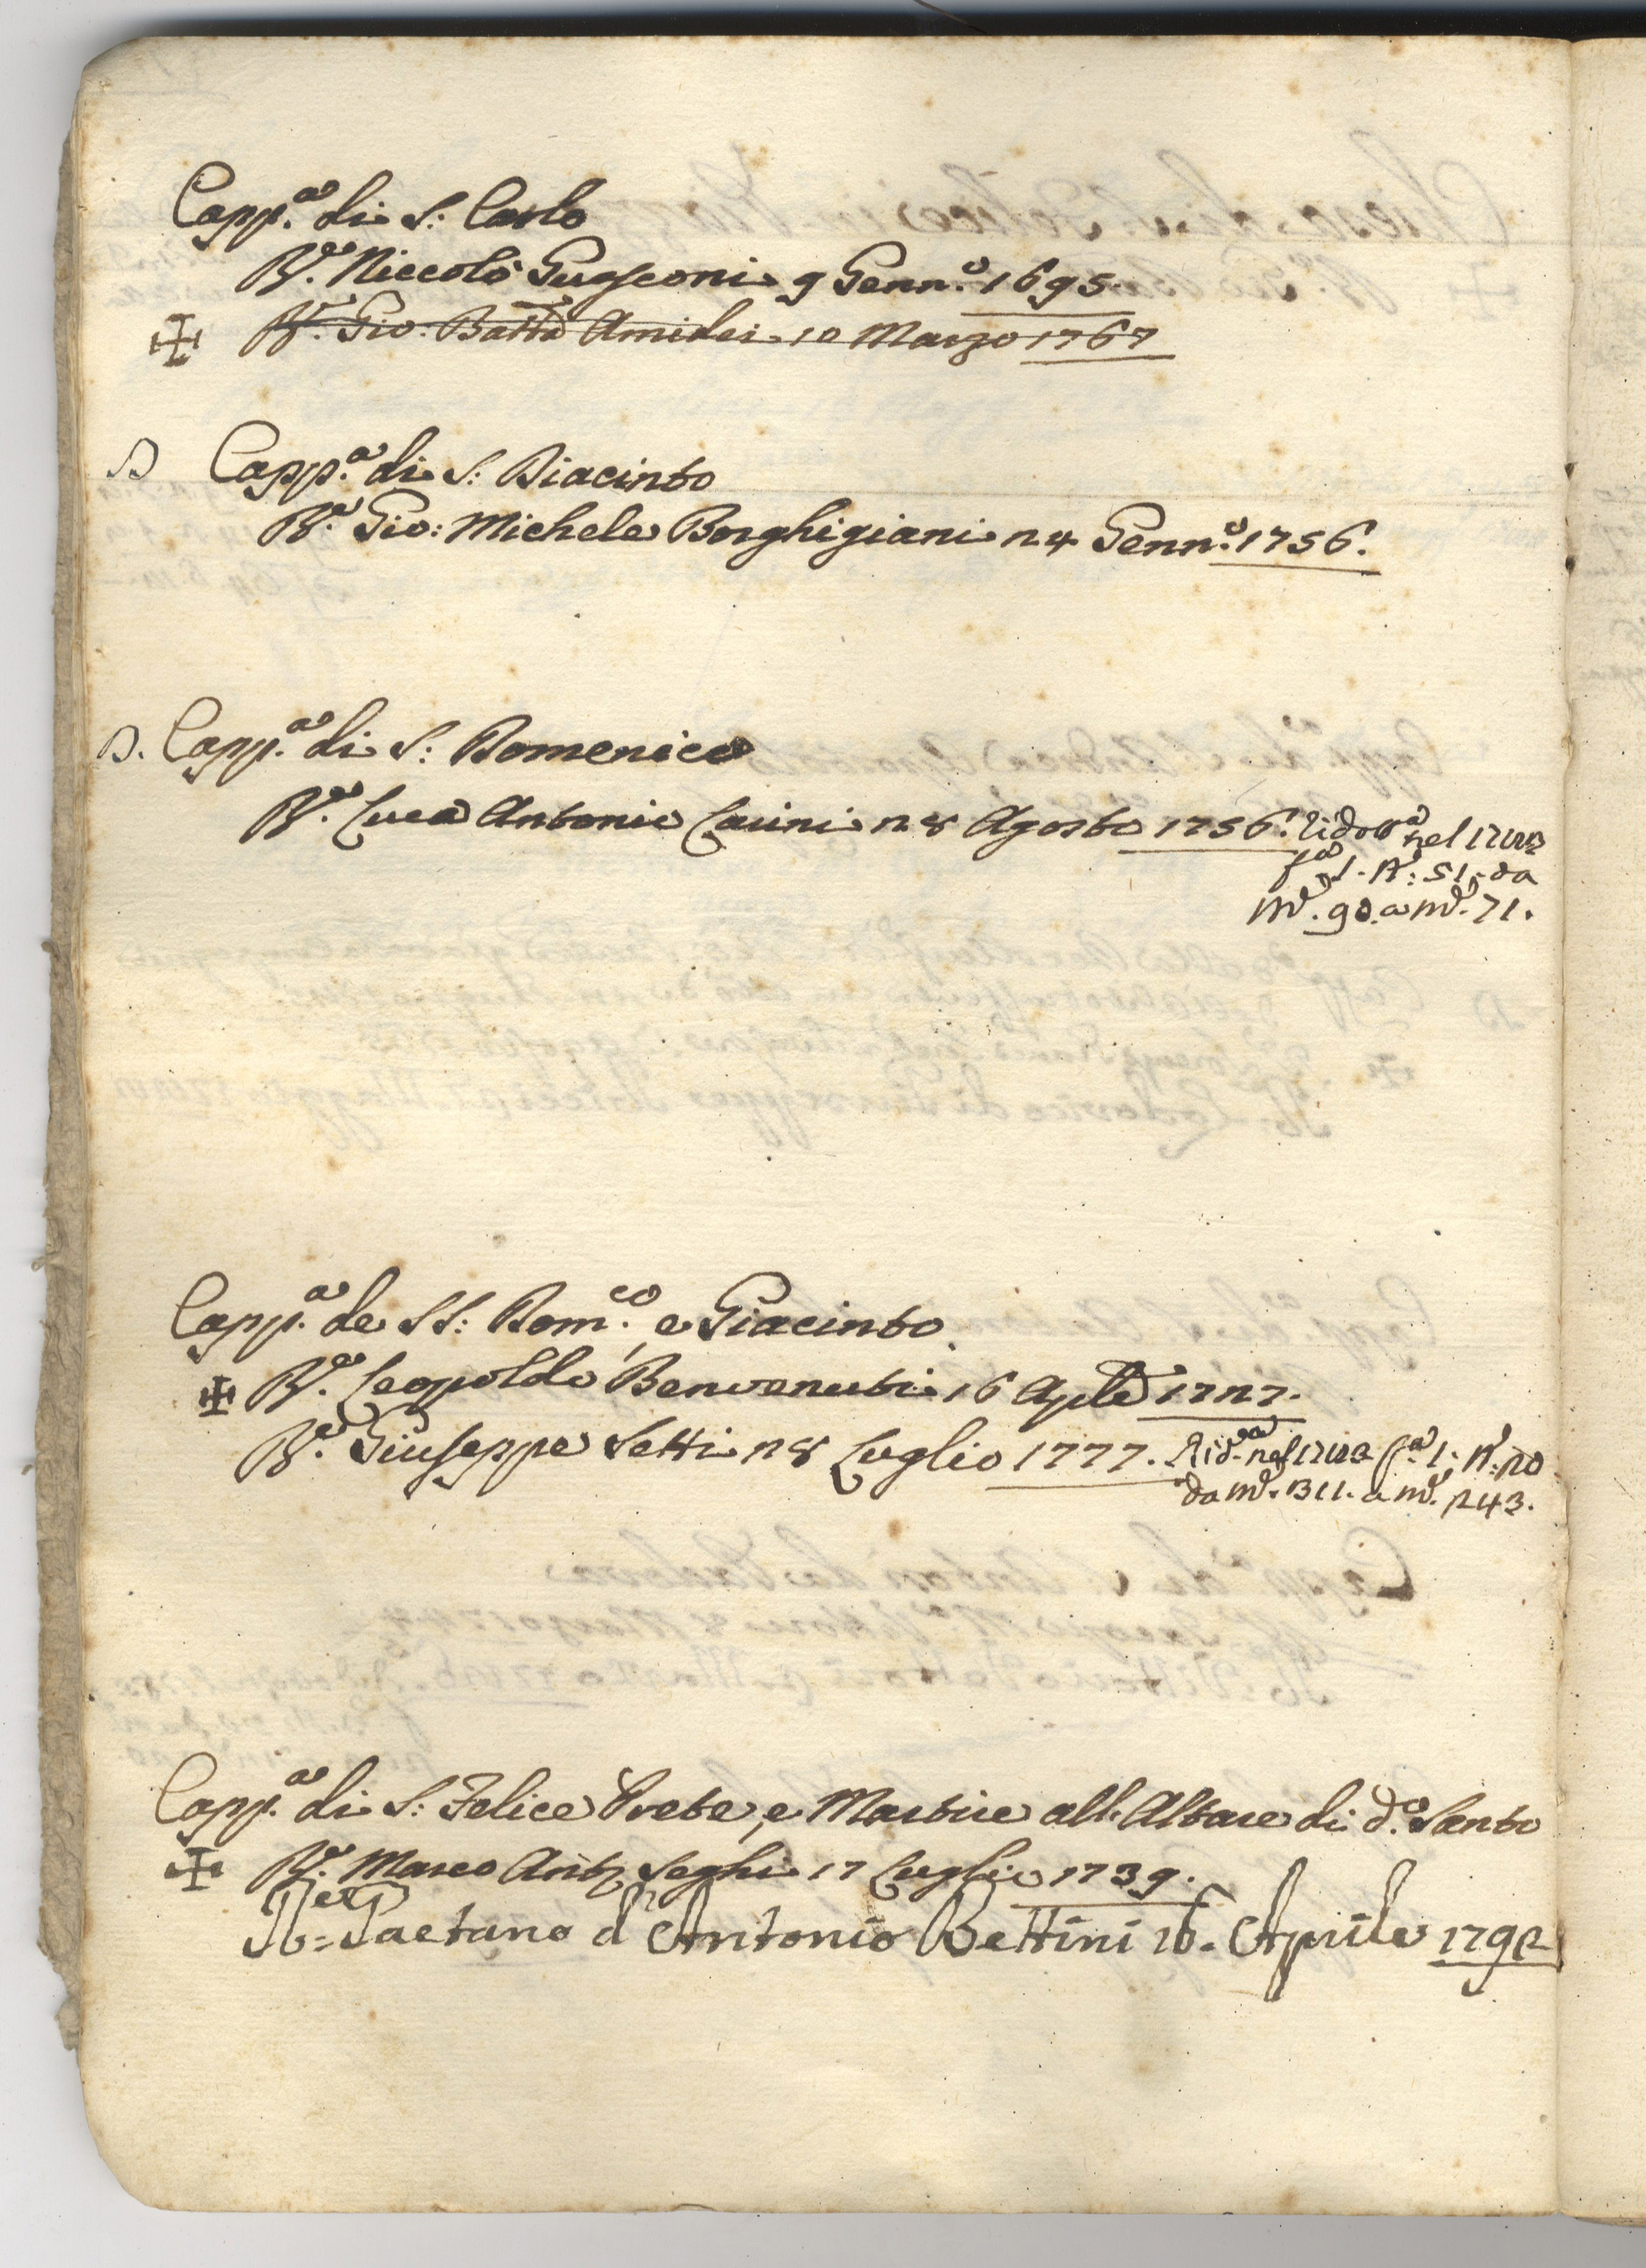 Capp.a di S: Carlo
R.e Niccolò Gugsconi 9 Genn.o 1695.
R.e Gio: Batta Amidei 10 Marzo 1767
D Capp.a di S: Diacinto
R.e Gio: Michele Borghigiani 24 Genn.o 1756.
D. Capp.a di S: Domenico
R.e Luca Antonio Casini 28 Agosto 1756. Ridotta nel
f.a 1. N.o: 51. da
m.o 90. a m.o 71.
Capp.a de SS: Dom.co e Giacinto
R.e Leopoldo Benvenuti 16 Aple 1727.
R.e Giuseppe Setti 28 Luglio 1777. Rid.a nel f.a 1. N.o: 20
da m.o 311. a m.o 243.
Capp.a di S: Felice Prete, e Martire all'Altare di d.o Santo
R.e Marco Ant.o Seghi 17 Luglio 1739.
R.e Gaetano d'Antonio Bettini 16. Aprile 1792